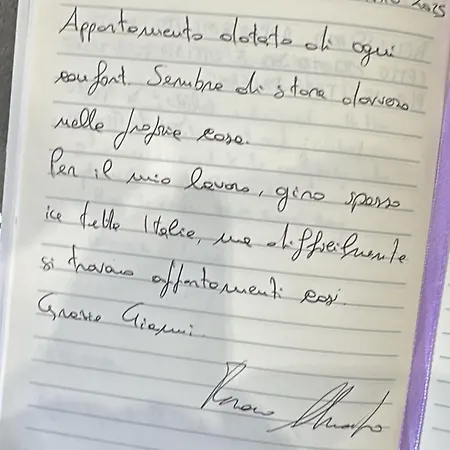 2025
Appartamento dotato di ogni
confort. Sembra di stare davvero
nelle proprie case.
Per il mio lavoro, giro spesso
in tutta Italia, ma difficilmente
si trovano appartamenti così.
Grazie Gianni.